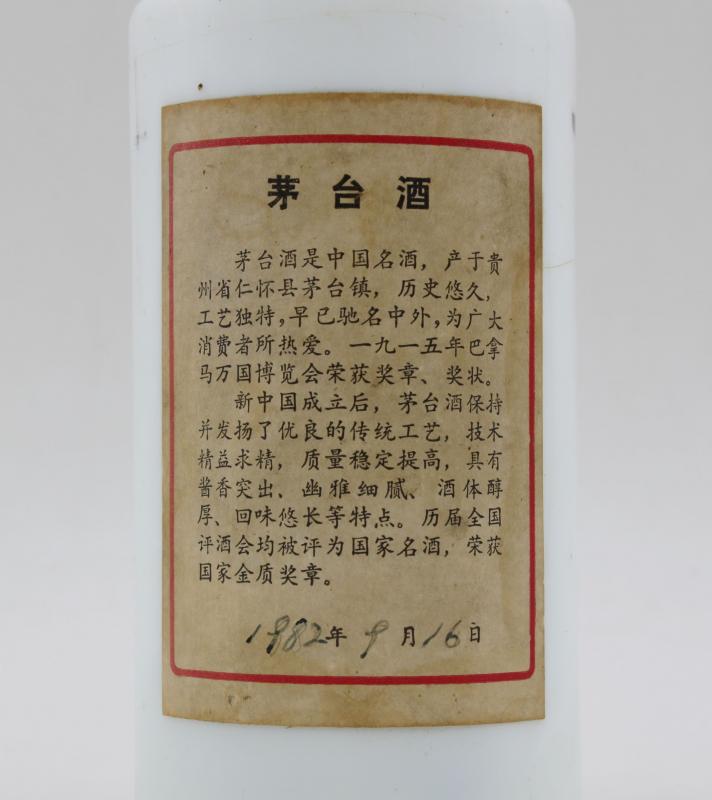 茅台酒
茅台酒是中国名酒，产于贵
州省仁怀县茅台镇，历史悠久，
工艺独特，早已驰名中外，为广大
消费者所热爱。一九一五年巴拿
马万国博览会荣获奖章、奖状。
新中国成立后，茅台酒保持
并发扬了优良的传统工艺，技术
精益求精，质量稳定提高，具有
酱香突出、幽雅细腻、酒体醇
厚、回味悠长等特点。历届全国
评酒会均被评为国家名酒，荣获
国家金质奖章。
1982年9月16日